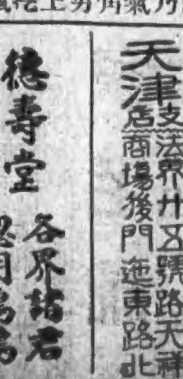 天津支店法界廿五號路天祥
商場後門迤東路北
德壽堂
各界諸君